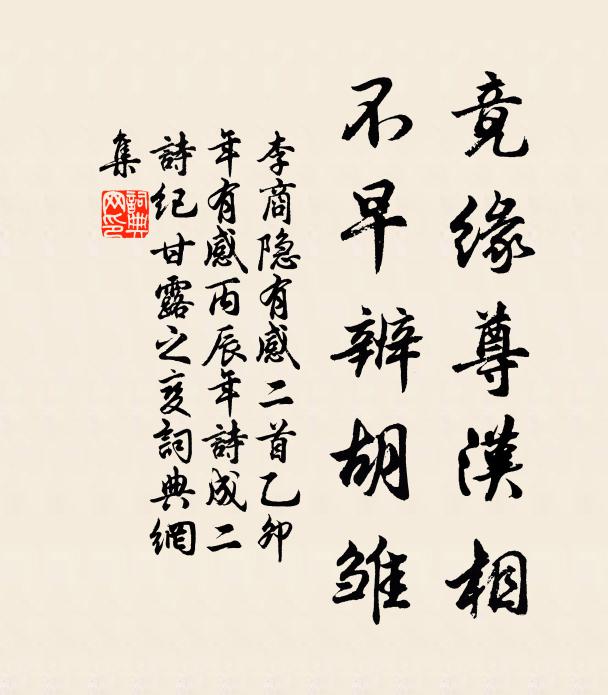 竟緣尊漢相
不早辨胡雛
李商隐有感二首乙卯
年有感丙辰年詩成二
詩纪甘露之变詞典網
集
詞典网印